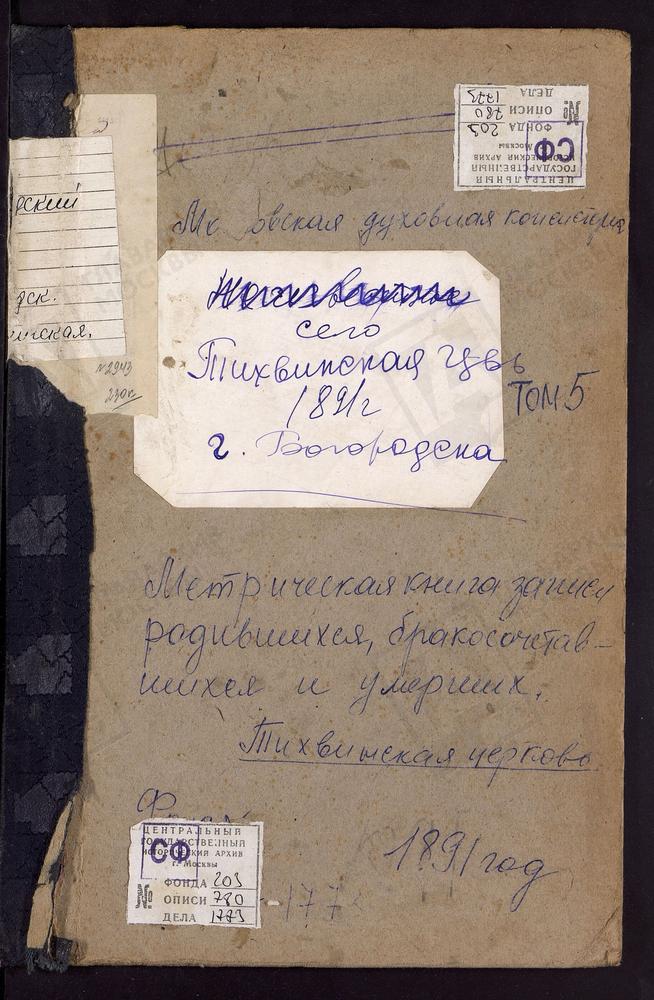 ЦЕНТРАЛЬНЫЙ
ГОСУДАРСТВЕННЫЙ
ИСТОРИЧЕСКИЙ АРХИВ
МОСКВЫ
СФ
№
ФОНДА 203
ОПИСИ 780
ДЕЛА 1773
рский
дск.
нская.
№2943
230к
Мо овская духовная консистория
село
Тихвинская цвь
1891г
г. Богородска
ТОМ 5
Метрическая книга записи
родившихся, бракосочетав-
шихся и умерших.
Тихвинская церковь
1891 год
ЦЕНТРАЛЬНЫЙ
ГОСУДАРСТВЕННЫЙ
ИСТОРИЧЕСКИЙ АРХИВ
г. Москвы
СФ
№
ФОНДА 203
ОПИСИ 780
ДЕЛА 1773